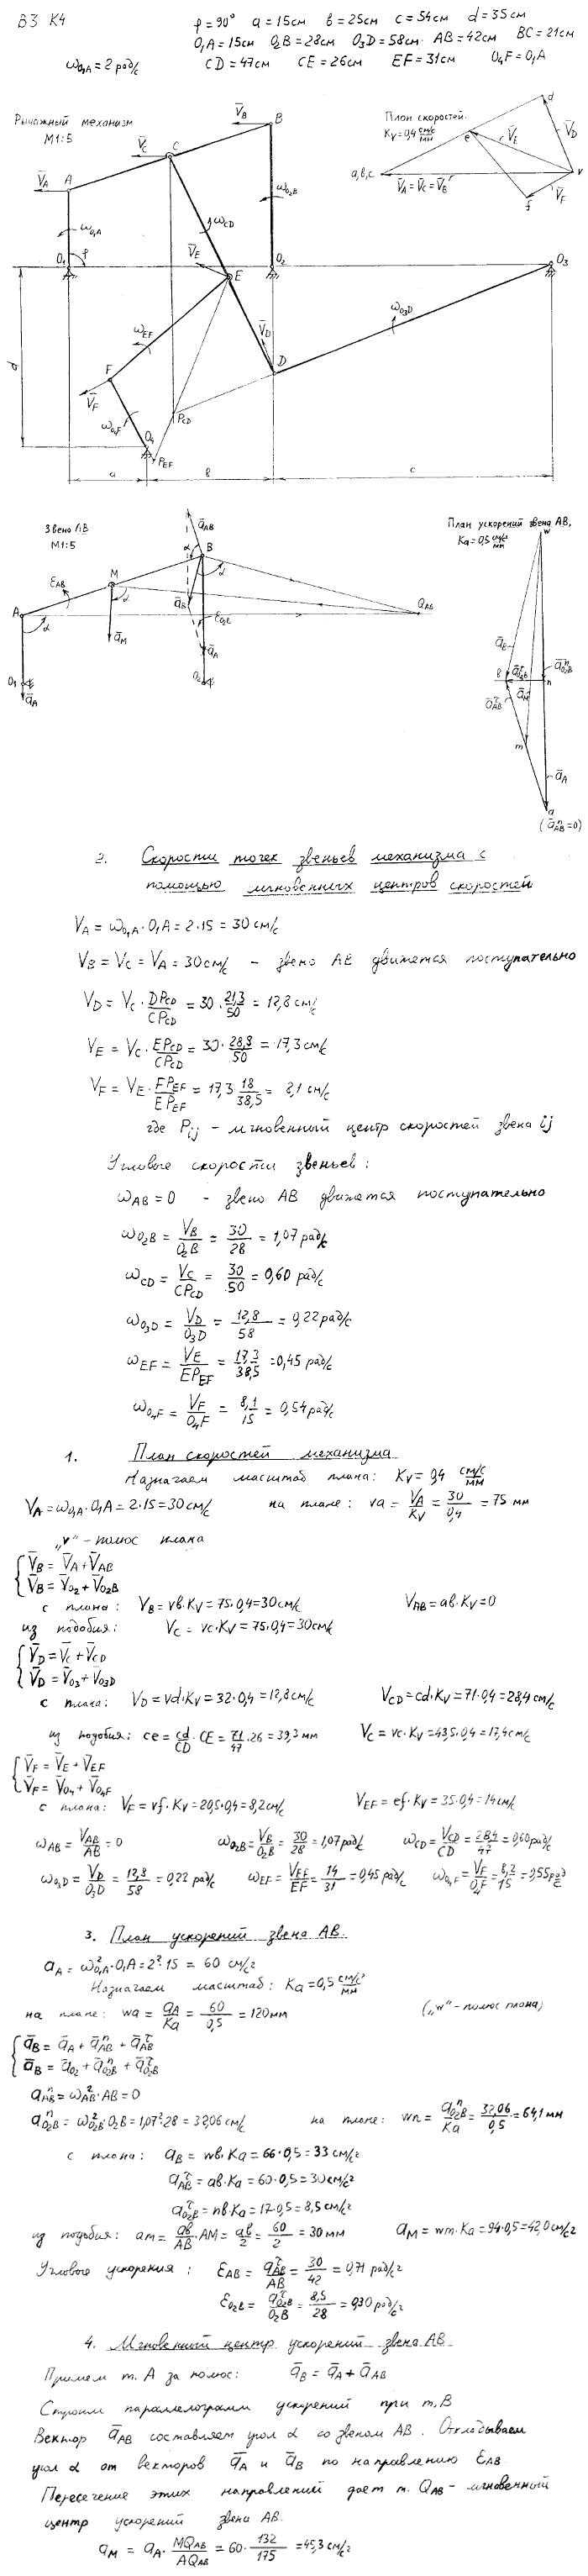 В3 К4
φ=90° a=15см в=25см с=54см d=35см
O₁A=15см O₂B=28см O₃D=58см AB=42см BC=21см
ω₀₁A=2 рад/с CD=47см CE=26см EF=31см O₄F=O₁A
Рычажный механизм
М1:5
План скоростей.
Kv=0,4 см/с/мм
a,в,с
V̄A=V̄C=V̄B
d
e
V̄E
V̄D
v
V̄F
f
V̄B
B
V̄C
C
V̄A
A
ω₀₁A
ωCD
ω₀₂B
O₁
φ
V̄E
E
O₂
O₃
ωEF
V̄D
ω₀₃D
D
F
V̄F
ω₀₄F
PCD
O₄
PEF
d
a
в
с
Звено AB
М1:5
План ускорений звена AB,
Ka=0,5 см/с²/мм
2. Скорости точек звеньев механизма с
помощью мгновенных центров скоростей
VA = ω₀₁A·O₁A = 2·15 = 30 см/с
VB = VC = VA = 30 см/с – звено AB движется поступательно
VD = VC · DPCD/CPCD = 30 · 21,3/50 = 12,8 см/с
VE = VC · EPCD/CPCD = 30 · 28,8/50 = 17,3 см/с
VF = VE · FPEF/EPEF = 17,3 · 18/38,5 = 8,1 см/с
где Pij – мгновенный центр скоростей звена ij
Угловые скорости звеньев:
ωAB = 0 – звено AB движется поступательно
ωO₂B = VB/O₂B = 30/28 = 1,07 рад/с
ωCD = VC/CPCD = 30/50 = 0,60 рад/с
ωO₃D = VD/O₃D = 12,8/58 = 0,22 рад/с
ωEF = VE/EPEF = 17,3/38,5 = 0,45 рад/с
ωO₄F = VF/O₄F = 8,1/15 = 0,54 рад/с
1. План скоростей механизма
Назначаем масштаб плана: Kv = 0,4 см/с/мм
VA = ω₀₁A·O₁A = 2·15 = 30 см/с на плане: va = VA/Kv = 30/0,4 = 75 мм
„v“ – полюс плана
{ V̄B = V̄A + V̄AB
V̄B = V̄O₂ + V̄O₂B
с плана: VB = vв·Kv = 75·0,4 = 30 см/с VAB = aв·Kv = 0
из подобия: VC = vc·Kv = 75·0,4 = 30 см/с
{ V̄D = V̄C + V̄CD
V̄D = V̄O₃ + V̄O₃D
с плана: VD = vd·Kv = 32·0,4 = 12,8 см/с VCD = cd·Kv = 71·0,4 = 28,4 см/с
из подобия: ce = cd/CD · CE = 71/47 · 26 = 39,3 мм VC = vc·Kv = 43,5·0,4 = 17,4 см/с
{ V̄F = V̄E + V̄EF
V̄F = V̄O₄ + V̄O₄F
с плана: VF = vf·Kv = 20,5·0,4 = 8,2 см/с VEF = ef·Kv = 35·0,4 = 14 см/с
ωAB = VAB/AB = 0 ωO₂B = VB/O₂B = 30/28 = 1,07 рад/с ωCD = VCD/CD = 28,4/47 = 0,60 рад/с
ωO₃D = VD/O₃D = 12,8/58 = 0,22 рад/с ωEF = VEF/EF = 14/31 = 0,45 рад/с ωO₄F = VF/O₄F = 8,2/15 = 0,55 рад/с
3. План ускорений звена AB.
aA = ω²O₁A·O₁A = 2²·15 = 60 см/с²
Назначаем масштаб: Ka = 0,5 см/с²/мм
на плане: wa = aA/Ka = 60/0,5 = 120 мм („w“ – полюс плана)
{ āB = āA + āⁿAB + āᵗAB
āB = āO₂ + āⁿO₂B + āᵗO₂B
aⁿAB = ω²AB·AB = 0
aⁿO₂B = ω²O₂B·O₂B = 1,07²·28 = 32,06 см/с² на плане: wn = aⁿO₂B/Ka = 32,06/0,5 = 64,1 мм
с плана: aB = wв·Ka = 66·0,5 = 33 см/с²
aᵗAB = aв·Ka = 60·0,5 = 30 см/с²
aᵗO₂B = nв·Ka = 17·0,5 = 8,5 см/с²
из подобия: am = aв/AB · AM = aв/2 = 60/2 = 30 мм aM = wm·Ka = 94·0,5 = 42,0 см/с²
Угловые ускорения: εAB = aᵗAB/AB = 30/42 = 0,71 рад/с²
εO₂B = aᵗO₂B/O₂B = 8,5/28 = 0,30 рад/с²
4. Мгновенный центр ускорений звена AB.
Примем т. A за полюс: āB = āA + āAB
Строим параллелограмм ускорений при т. B
Вектор āAB составляет угол α со звеном AB. Откладываем
угол α от векторов āA и āB по направлению εAB.
Пересечение этих направлений дает т. QAB – мгновенный
центр ускорений звена AB.
aM = aA · MQAB/AQAB = 60 · 132/175 = 45,3 см/с²